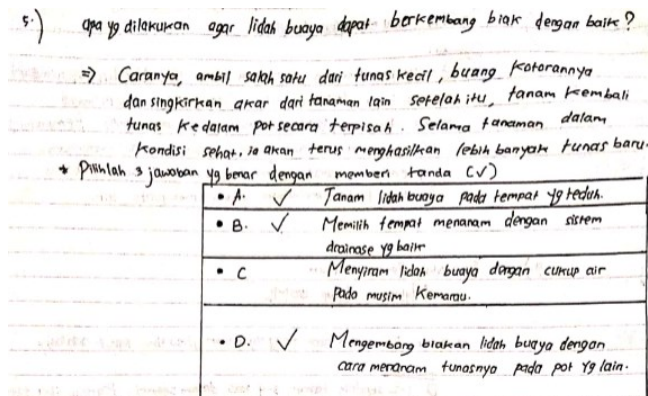 5.) apa yg dilakukan agar lidah buaya dapat berkembang biak dengan baik?
=> Caranya, ambil salah satu dari tunas kecil, buang kotorannya
dan singkirkan akar dari tanaman lain setelah itu, tanam kembali
tunas kedalam pot secara terpisah. Selama tanaman dalam
kondisi sehat, ia akan terus menghasilkan lebih banyak tunas baru.
* Pilihlah 3 jawaban yg benar dengan memberi tanda (✓)
• A. ✓ Tanam lidah buaya pada tempat yg teduh.
• B. ✓ Memilih tempat menanam dengan sistem
drainase yg baik
• C Menyiram lidah buaya dengan cukup air
Pada musim Kemarau.
• D. ✓ Mengembang biakan lidah buaya dengan
cara menanam tunasnya pada pot yg lain.